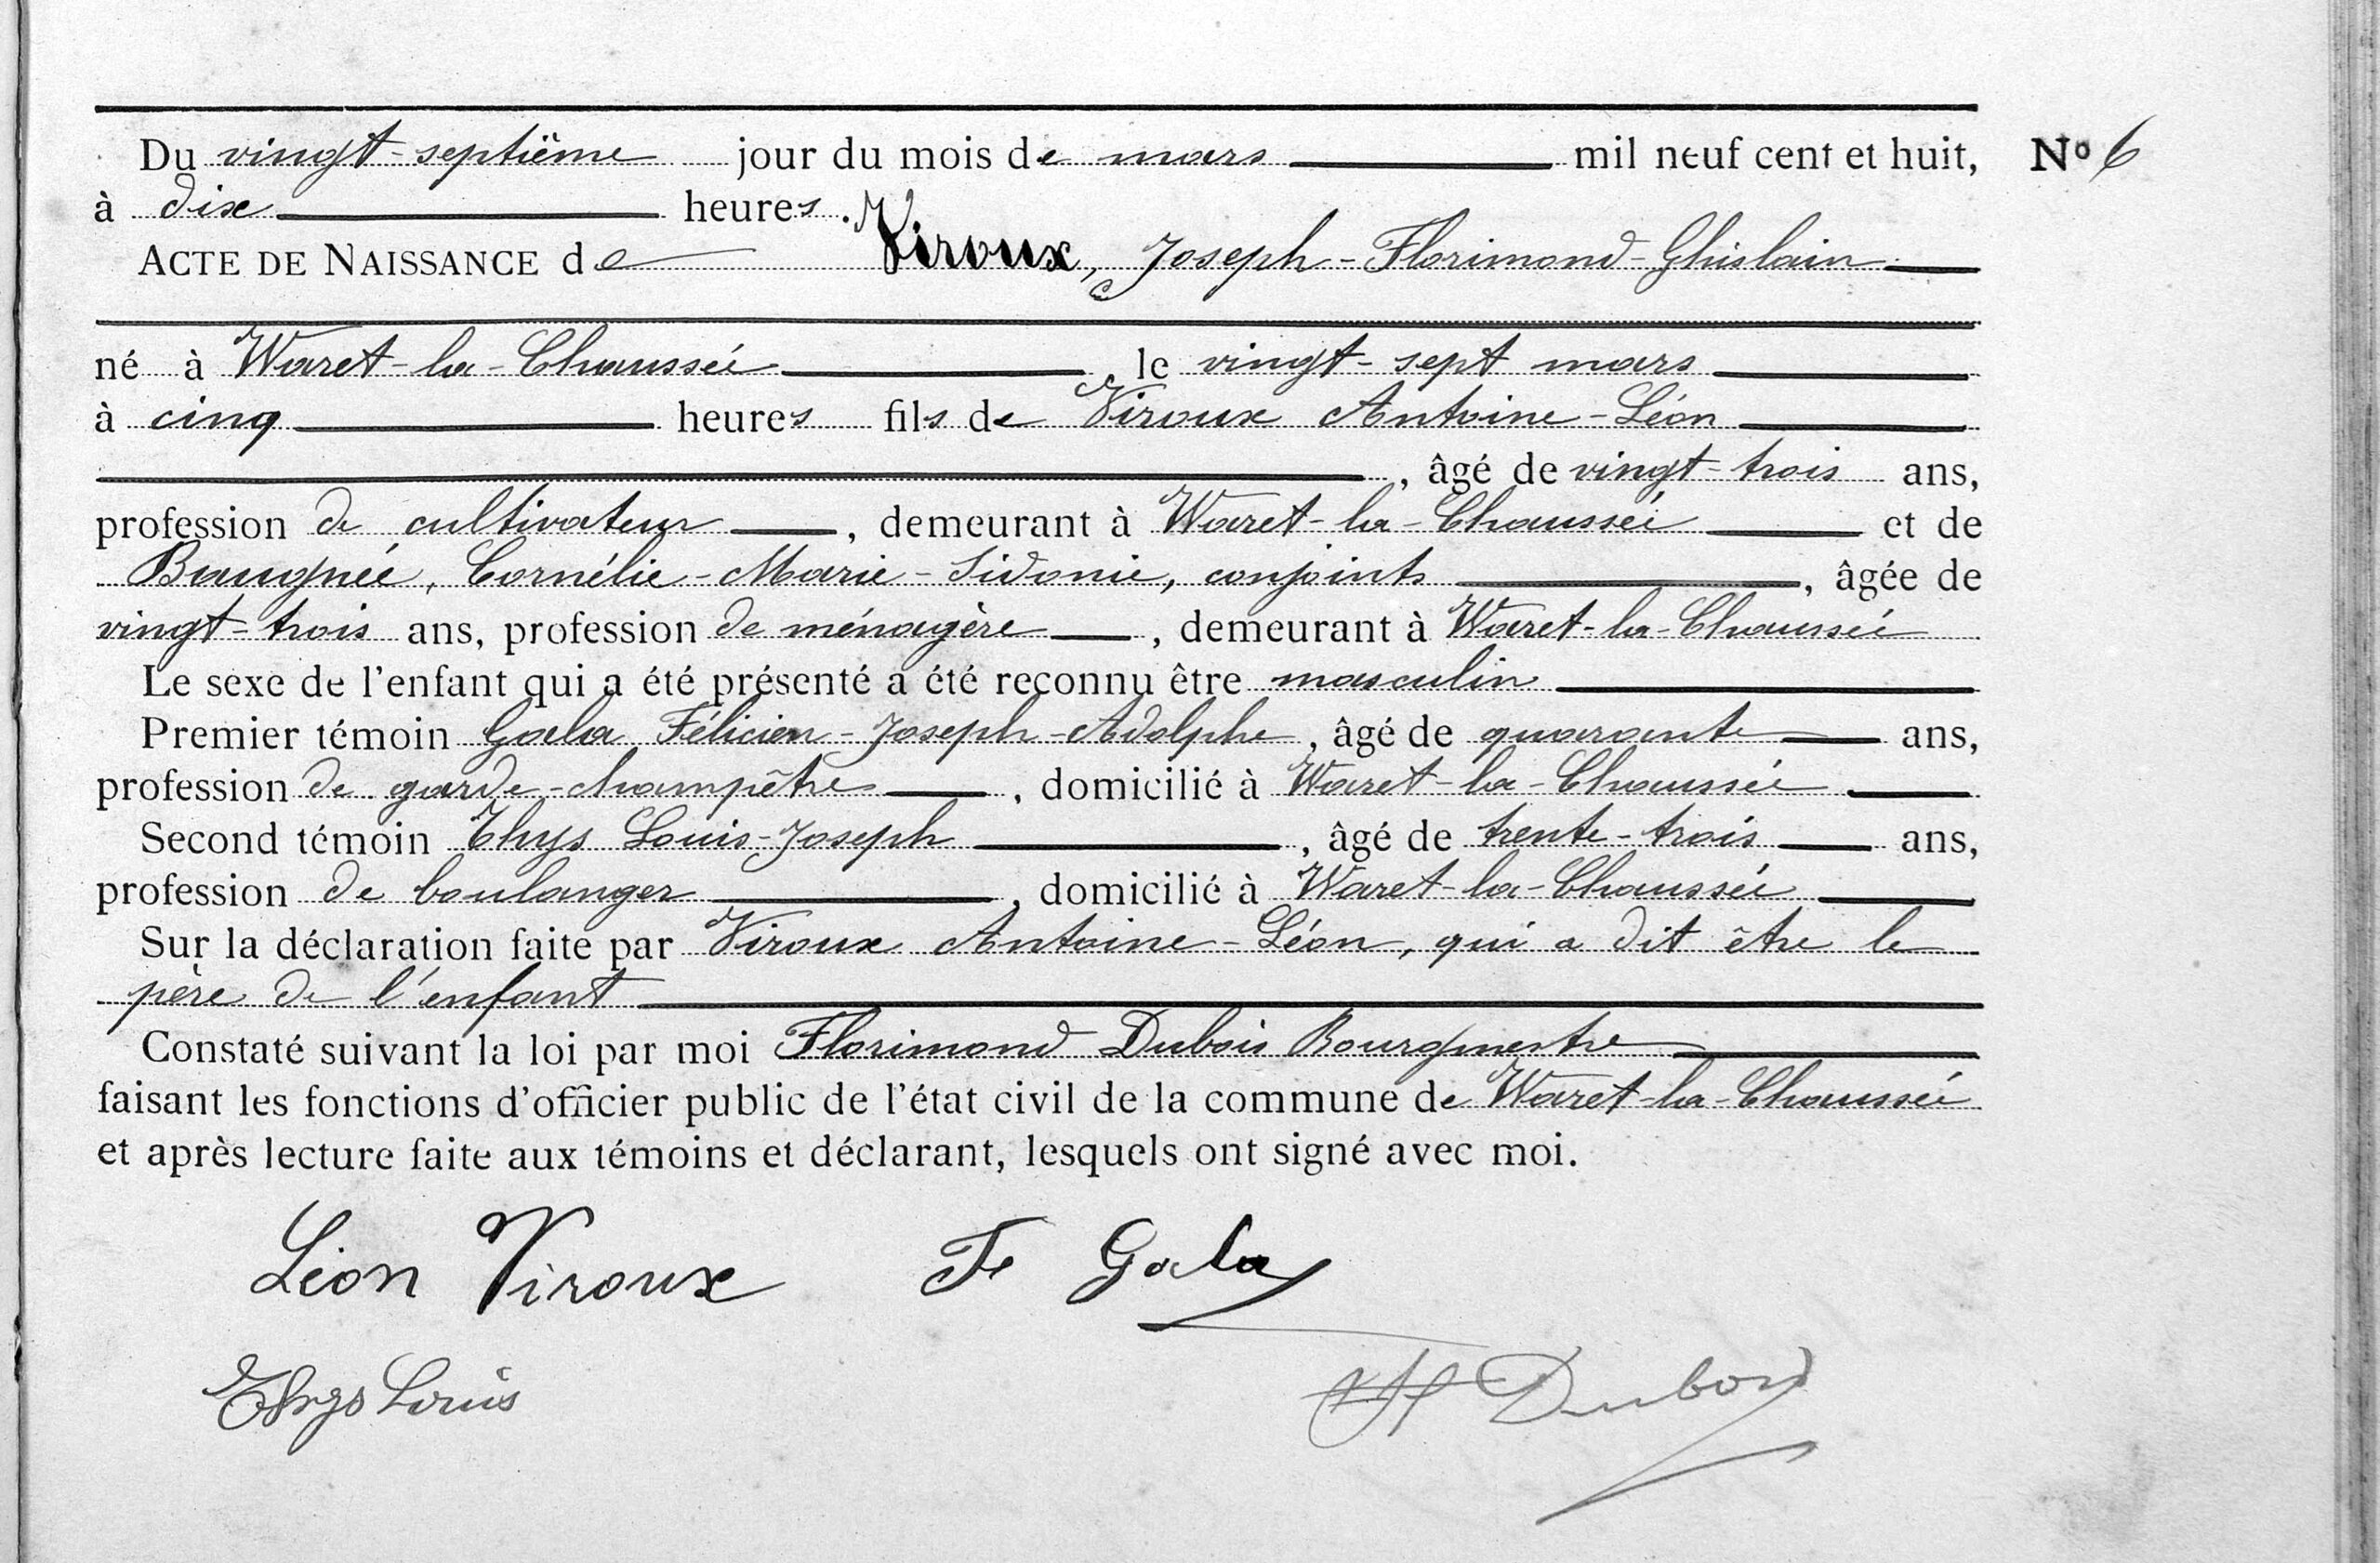 Du vingt-septième jour du mois de mars mil neuf cent et huit, N° 6
à dix heures.
ACTE DE NAISSANCE de Viroux, Joseph-Florimond-Ghislain
né à Waret-la-Chaussée, le vingt-sept mars
à cinq heures fils de Viroux Antoine-Léon
, âgé de vingt-trois ans,
profession de cultivateur, demeurant à Waret-la-Chaussée et de
Baugnée, Cornélie-Marie-Sidonie, conjoints, âgée de
vingt-trois ans, profession de ménagère, demeurant à Waret-la-Chaussée
Le sexe de l'enfant qui a été présenté a été reconnu être masculin
Premier témoin Gala Félicien-Joseph-Adolphe, âgé de quarante ans,
profession de garde-champêtre, domicilié à Waret-la-Chaussée
Second témoin Thys Louis-Joseph, âgé de trente-trois ans,
profession de boulanger, domicilié à Waret-la-Chaussée
Sur la déclaration faite par Viroux Antoine-Léon, qui a dit être le
père de l'enfant
Constaté suivant la loi par moi Florimond Dubois Bourgmestre
faisant les fonctions d'officier public de l'état civil de la commune de Waret-la-Chaussée
et après lecture faite aux témoins et déclarant, lesquels ont signé avec moi.
Léon Viroux Fe Gala
Thys Louis Fl Dubois